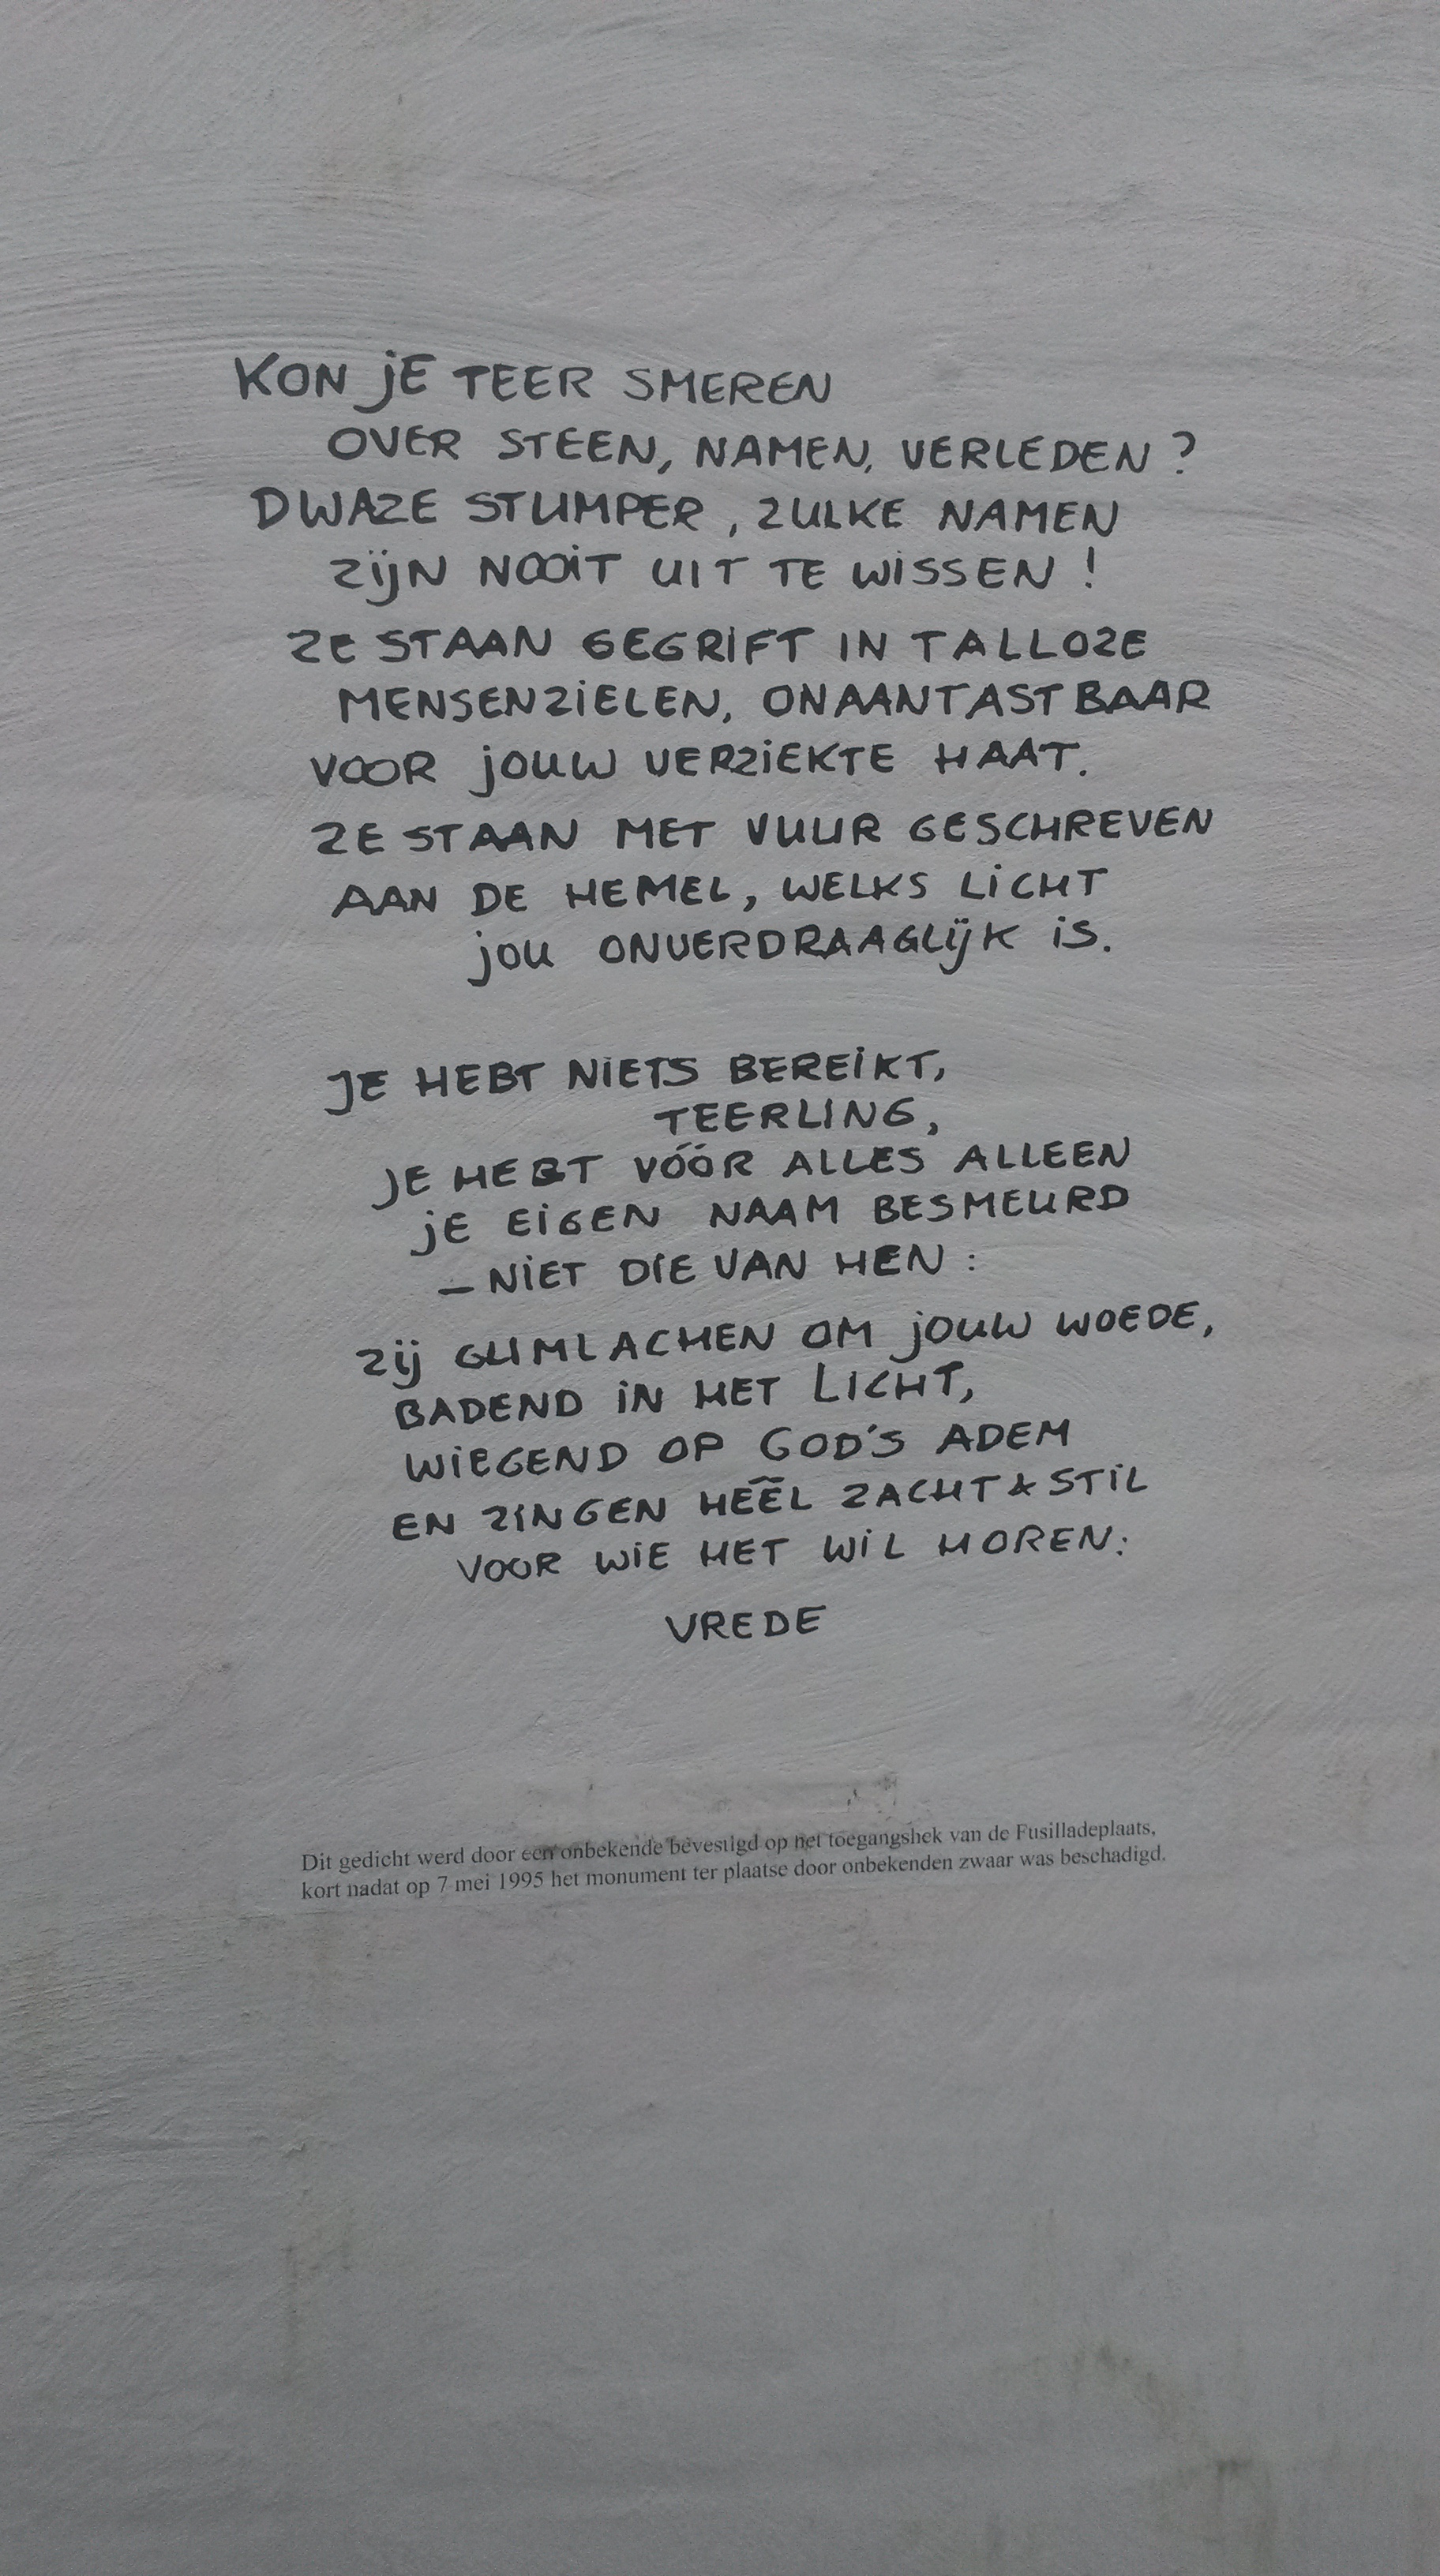 KON JE TEER SMEREN
OVER STEEN, NAMEN, VERLEDEN?
DWAZE STUMPER, ZULKE NAMEN
ZIJN NOOIT UIT TE WISSEN!
ZE STAAN GEGRIFT IN TALLOZE
MENSENZIELEN, ONAANTASTBAAR
VOOR JOUW VERZIEKTE HAAT.
ZE STAAN MET VUUR GESCHREVEN
AAN DE HEMEL, WELKS LICHT
JOU ONVERDRAAGLIJK IS.
JE HEBT NIETS BEREIKT,
TEERLING,
JE HEBT VÓÓR ALLES ALLEEN
JE EIGEN NAAM BESMEURD
– NIET DIE VAN HEN:
ZIJ GLIMLACHEN OM JOUW WOEDE,
BADEND IN HET LICHT,
WIEGEND OP GOD'S ADEM
EN ZINGEN HEEL ZACHT & STIL
VOOR WIE HET WIL HOREN:
VREDE
Dit gedicht werd door een onbekende bevestigd op het toegangshek van de Fusilladeplaats,
kort nadat op 7 mei 1995 het monument ter plaatse door onbekenden zwaar was beschadigd.